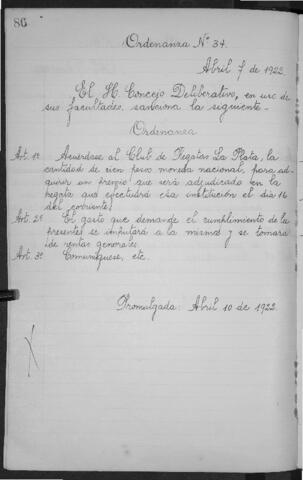 86
Ordenanza Nº 34.
Abril 7 de 1922.
El H. Concejo Deliberativo, en uso de
sus facultades, sanciona la siguiente-
Ordenanza
Art. 1º Acuérdase al Club de Regatas La Plata, la
cantidad de cien pesos moneda nacional, para ad-
quirir un premio que será adjudicado en la
regata que ejecutará esa institución el día 16
del corriente.
Art. 2º El gasto que demande el cumplimiento de la
presente se imputará a la misma y se tomará
de rentas generales.
Art. 3º Comuníquese, etc.
Promulgada: Abril 10 de 1922.